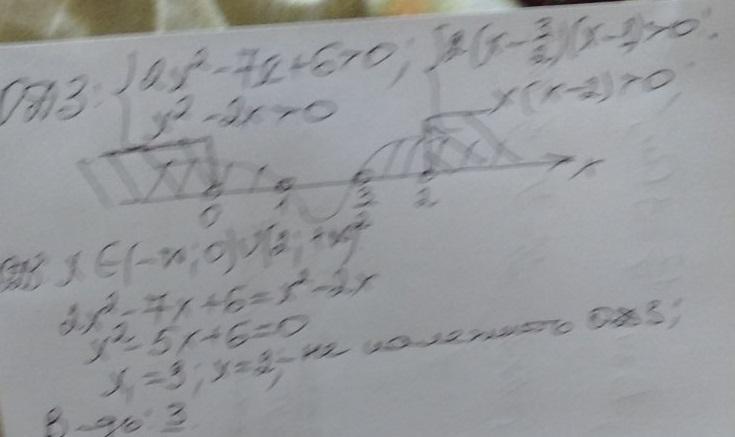 ОДЗ: { 2x² - 7x + 6 > 0; { 2(x - 3/2)(x - 2) > 0;
x² - 2x > 0 x(x - 2) > 0
0 1 3/2 2 x
x ∈ (-∞; 0) ∪ (2; +∞)
2x² - 7x + 6 = x² - 2x
x² - 5x + 6 = 0
x₁ = 3; x = 2 - не належить ОДЗ;
В-дь: 3